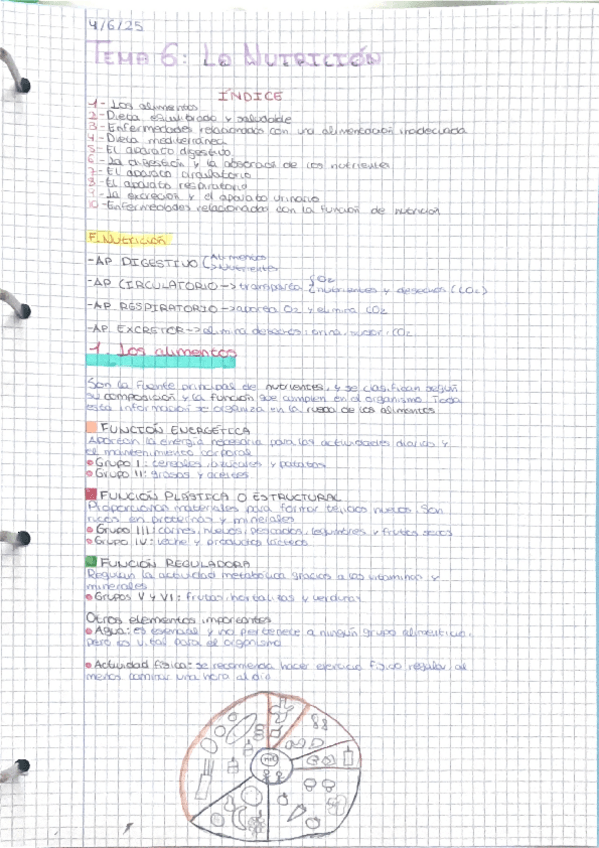 4/6/25
TEMA 6: La NUTRICIÓN
ÍNDICE
1- Los alimentos
2- Dieta equilibrada y saludable
3- Enfermedades relacionadas con una alimentación inadecuada
4- Dieta mediterránea
5- El aparato digestivo
6- La digestión y la absorción de los nutrientes
7- El aparato circulatorio
8- El aparato respiratorio
9- La excreción y el aparato urinario
10- Enfermedades relacionadas con la función de nutrición
F. Nutrición
-AP DIGESTIVO Alimentos
Nutrientes
-AP CIRCULATORIO -> transporta O2
nutrientes y desechos (CO2)
-AP RESPIRATORIO -> aporta O2 y elimina CO2
-AP. EXCRETOR -> elimina desechos: orina, sudor, CO2
1. Los alimentos
Son la fuente principal de nutrientes, y se clasifican según
su composición y la función que cumplen en el organismo. Toda
esta información se organiza en la rueda de los alimentos
FUNCIÓN ENERGÉTICA
Aportan la energía necesaria para las actividades diarias y
el mantenimiento corporal
Grupo I: cereales, azúcares y patatas
Grupo II: grasas y aceites
FUNCIÓN PLÁSTICA O ESTRUCTURAL
Proporciona materiales para formar tejidos nuevos. Son
ricos en proteínas y minerales
Grupo III: carnes, huevos, pescados, legumbres y frutos secos
Grupo IV: leche y productos lácteos
FUNCIÓN REGULADORA
Regulan la actividad metabólica gracias a las vitaminas y
minerales
Grupos V y VI: frutas, hortalizas y verduras
Otros elementos importantes
Agua: es esencial y no pertenece a ningún grupo alimenticio,
pero es vital para el organismo
Actividad física: se recomienda hacer ejercicio físico regular, al
menos caminar una hora al día